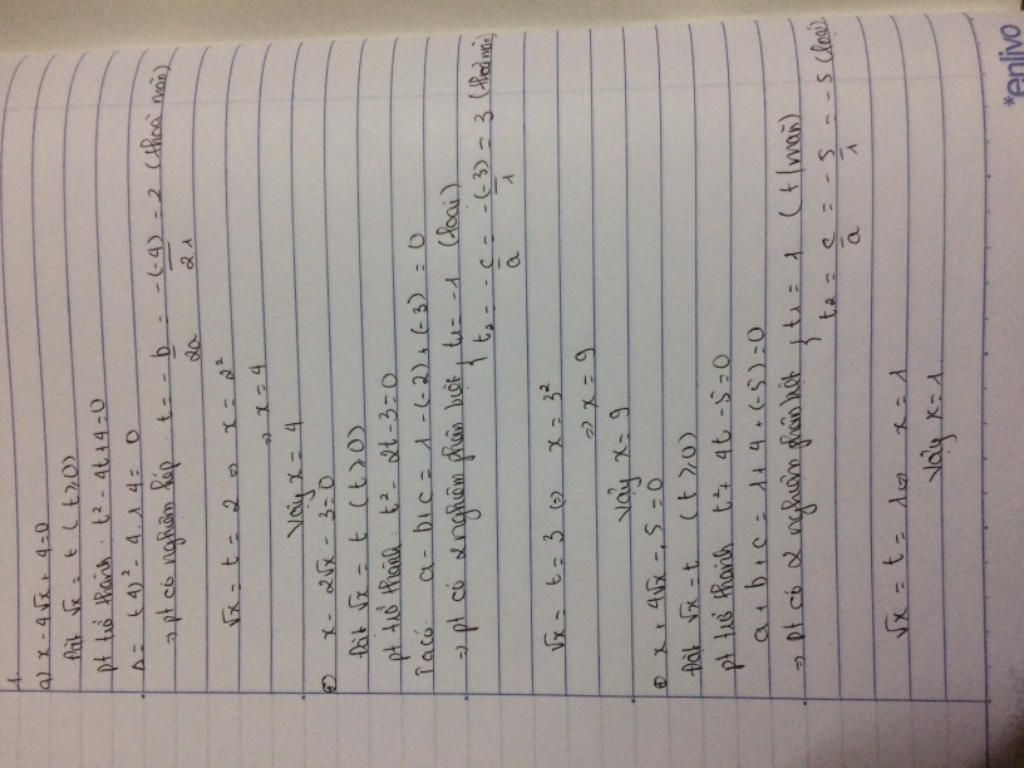 1.
a) x - 4√x + 4 = 0
Đặt √x = t (t ≥ 0)
pt trở thành: t² - 4t + 4 = 0
Δ = (-4)² - 4.1.4 = 0
⇒ pt có nghiệm kép t = -b/2a = -(-4)/2.1 = 2 (thoả mãn)
√x = t = 2 ⇔ x = 2²
⇒ x = 4
Vậy x = 4
x - 2√x - 3 = 0
Đặt √x = t (t ≥ 0)
pt trở thành t² - 2t - 3 = 0
Ta có: a - b + c = 1 - (-2) + (-3) = 0
⇒ pt có 2 nghiệm phân biệt { t₁ = -1 (loại)
t₂ = -c/a = -(-3)/1 = 3 (thoả mãn)
√x = t = 3 ⇔ x = 3²
⇒ x = 9
Vậy x = 9
x + 4√x - 5 = 0
Đặt √x = t (t ≥ 0)
pt trở thành t² + 4t - 5 = 0
a + b + c = 1 + 4 + (-5) = 0
⇒ pt có 2 nghiệm phân biệt { t₁ = 1 (t/mãn)
t₂ = c/a = -5/1 = -5 (loại)
√x = t = 1 ⇔ x = 1
Vậy x = 1
*enlivo